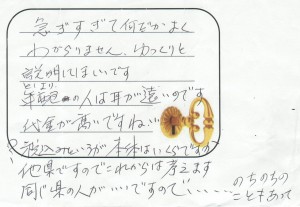 急ぎすぎて何だかよく
わかりません、ゆっくりと
説明してほしいです
としより
の人は耳が遠いのです
代金が高いですね…
税込みというが本体はいくらですの
他県ですのでこれからは考えます
同じ県の人がいいですので……
のちのちの
こともあって